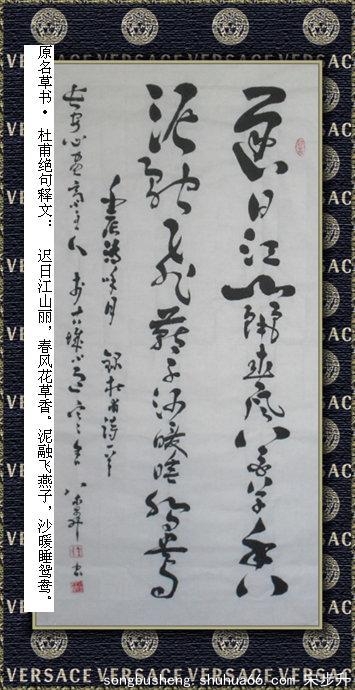 VERSACE VERSACE VERSACE VERSACE
遲日江山麗春风花草香
泥融飞燕子沙暖睡鸳鸯
录杜甫诗一首
原名草书· 杜甫绝句释文： 迟日江山丽，春风花草香。泥融飞燕子，沙暖睡鸳鸯。
VERSACE VERSACE VERSACE VERSACE
songbusheng. shuhua66. com 宋步升